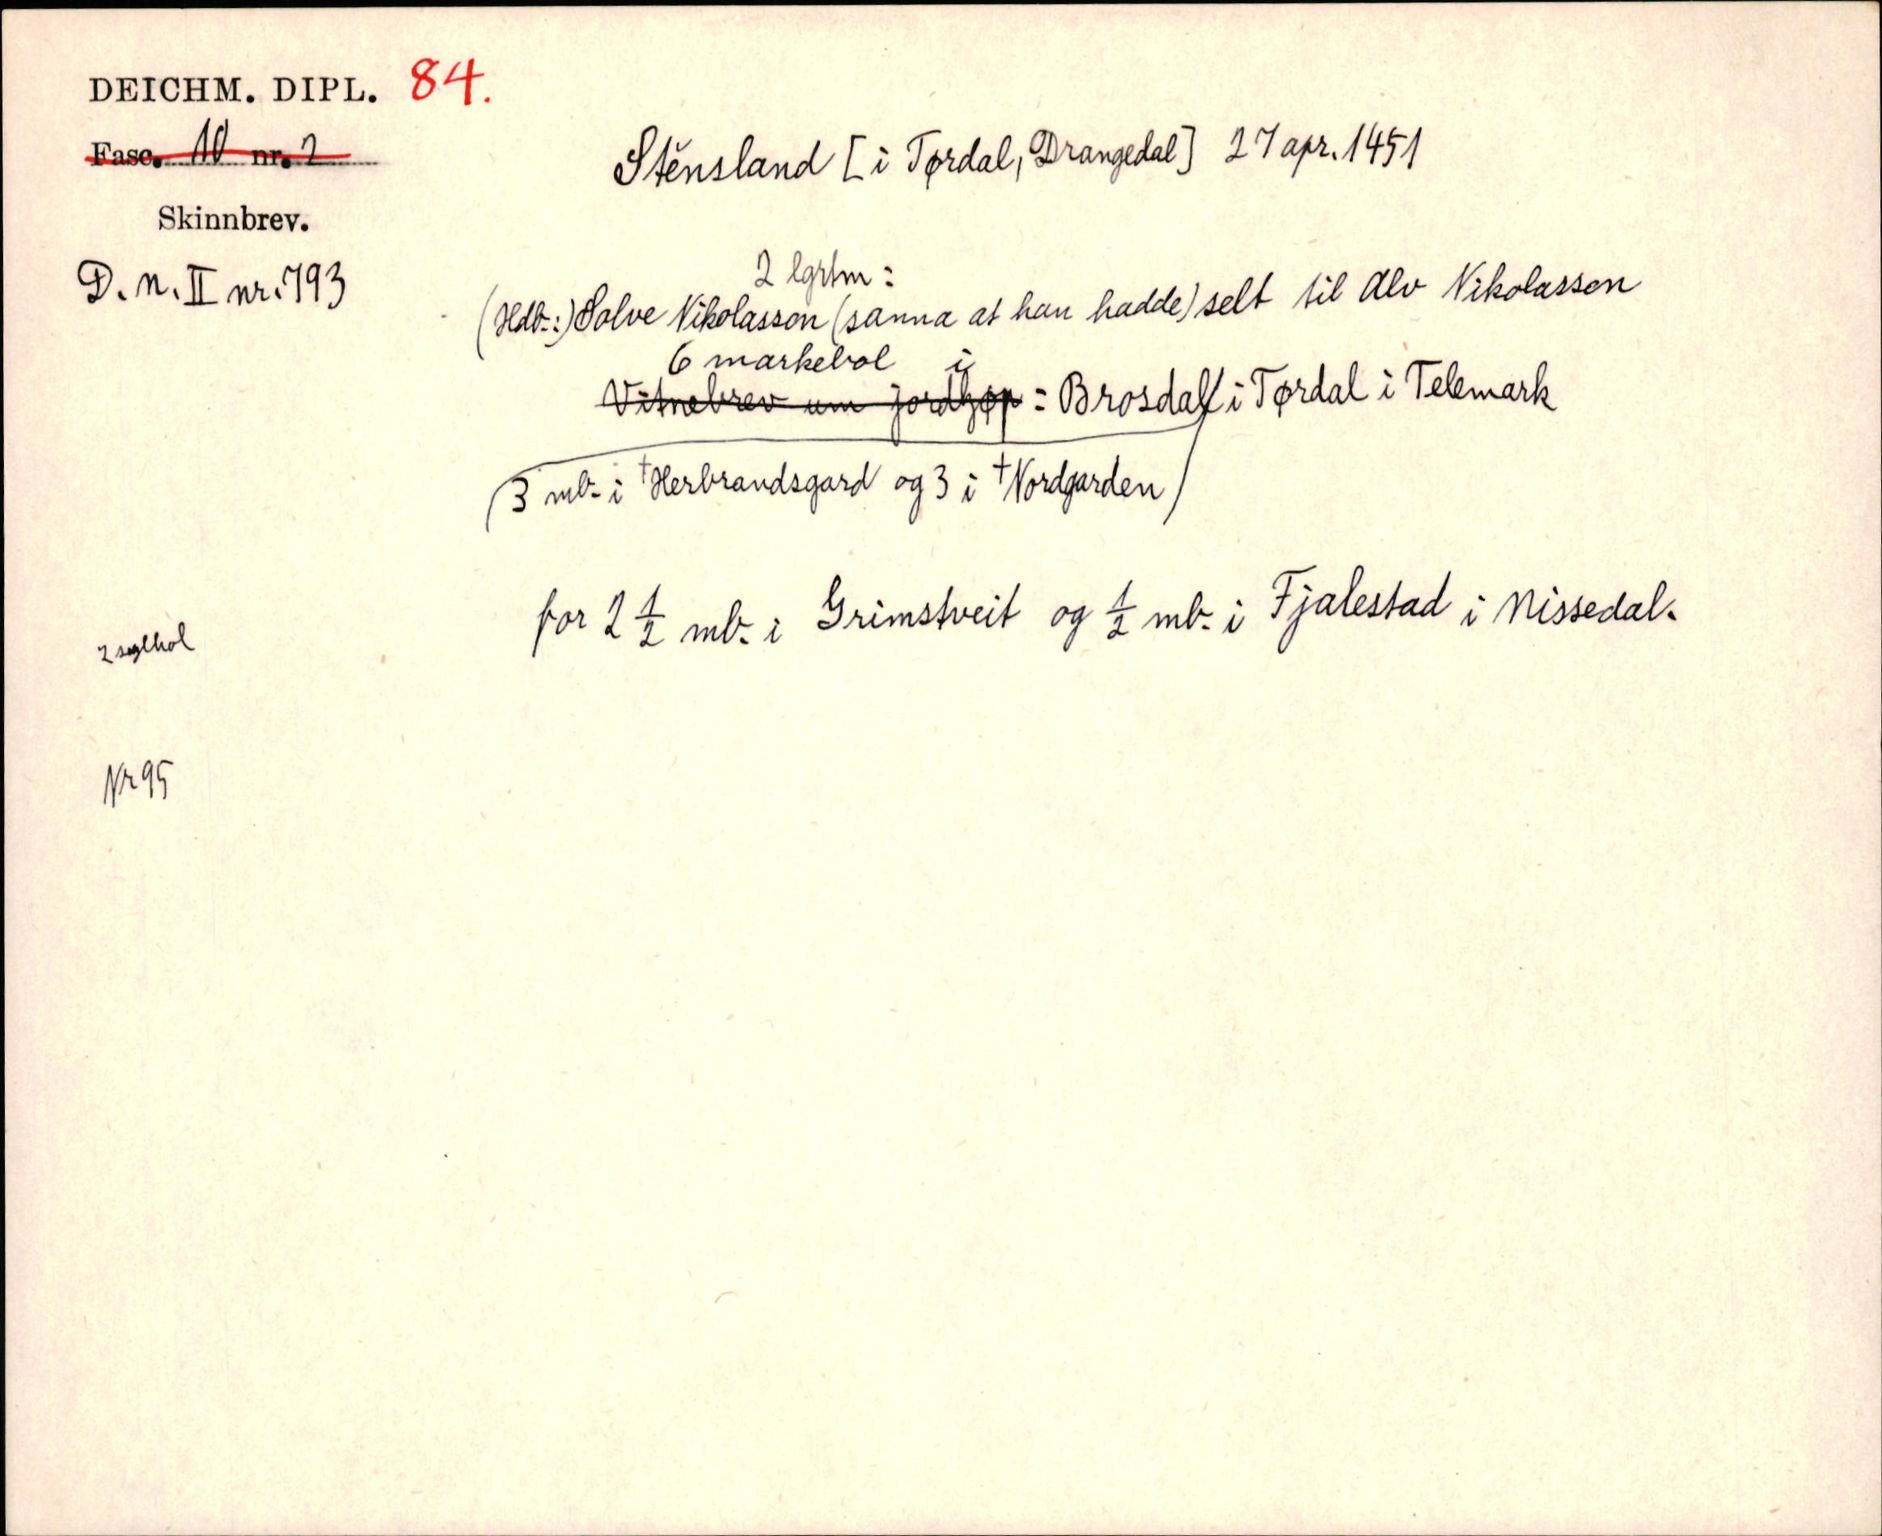 DEICHM. DIPL. 84.
Fasc. 10 nr. 2
Skinnbrev.
D. N. II nr. 793
Sténsland [i Tørdal, Drangedal] 27 apr. 1451
2 lgrtm:
(Hdb:) Solve Nikolasson (sanna at han hadde) selt til Alv Nikolasson
6 markebol i
Vitnebrev um jordkjøp: Brosdal i Tørdal i Telemark
(3 mb. i †Herbrandsgard og 3 i †Nordgarden)
for 2 1/2 mb. i Grimstveit og 1/2 mb. i Fjalestad i Nissedal.
2 seglhol
Nr 95